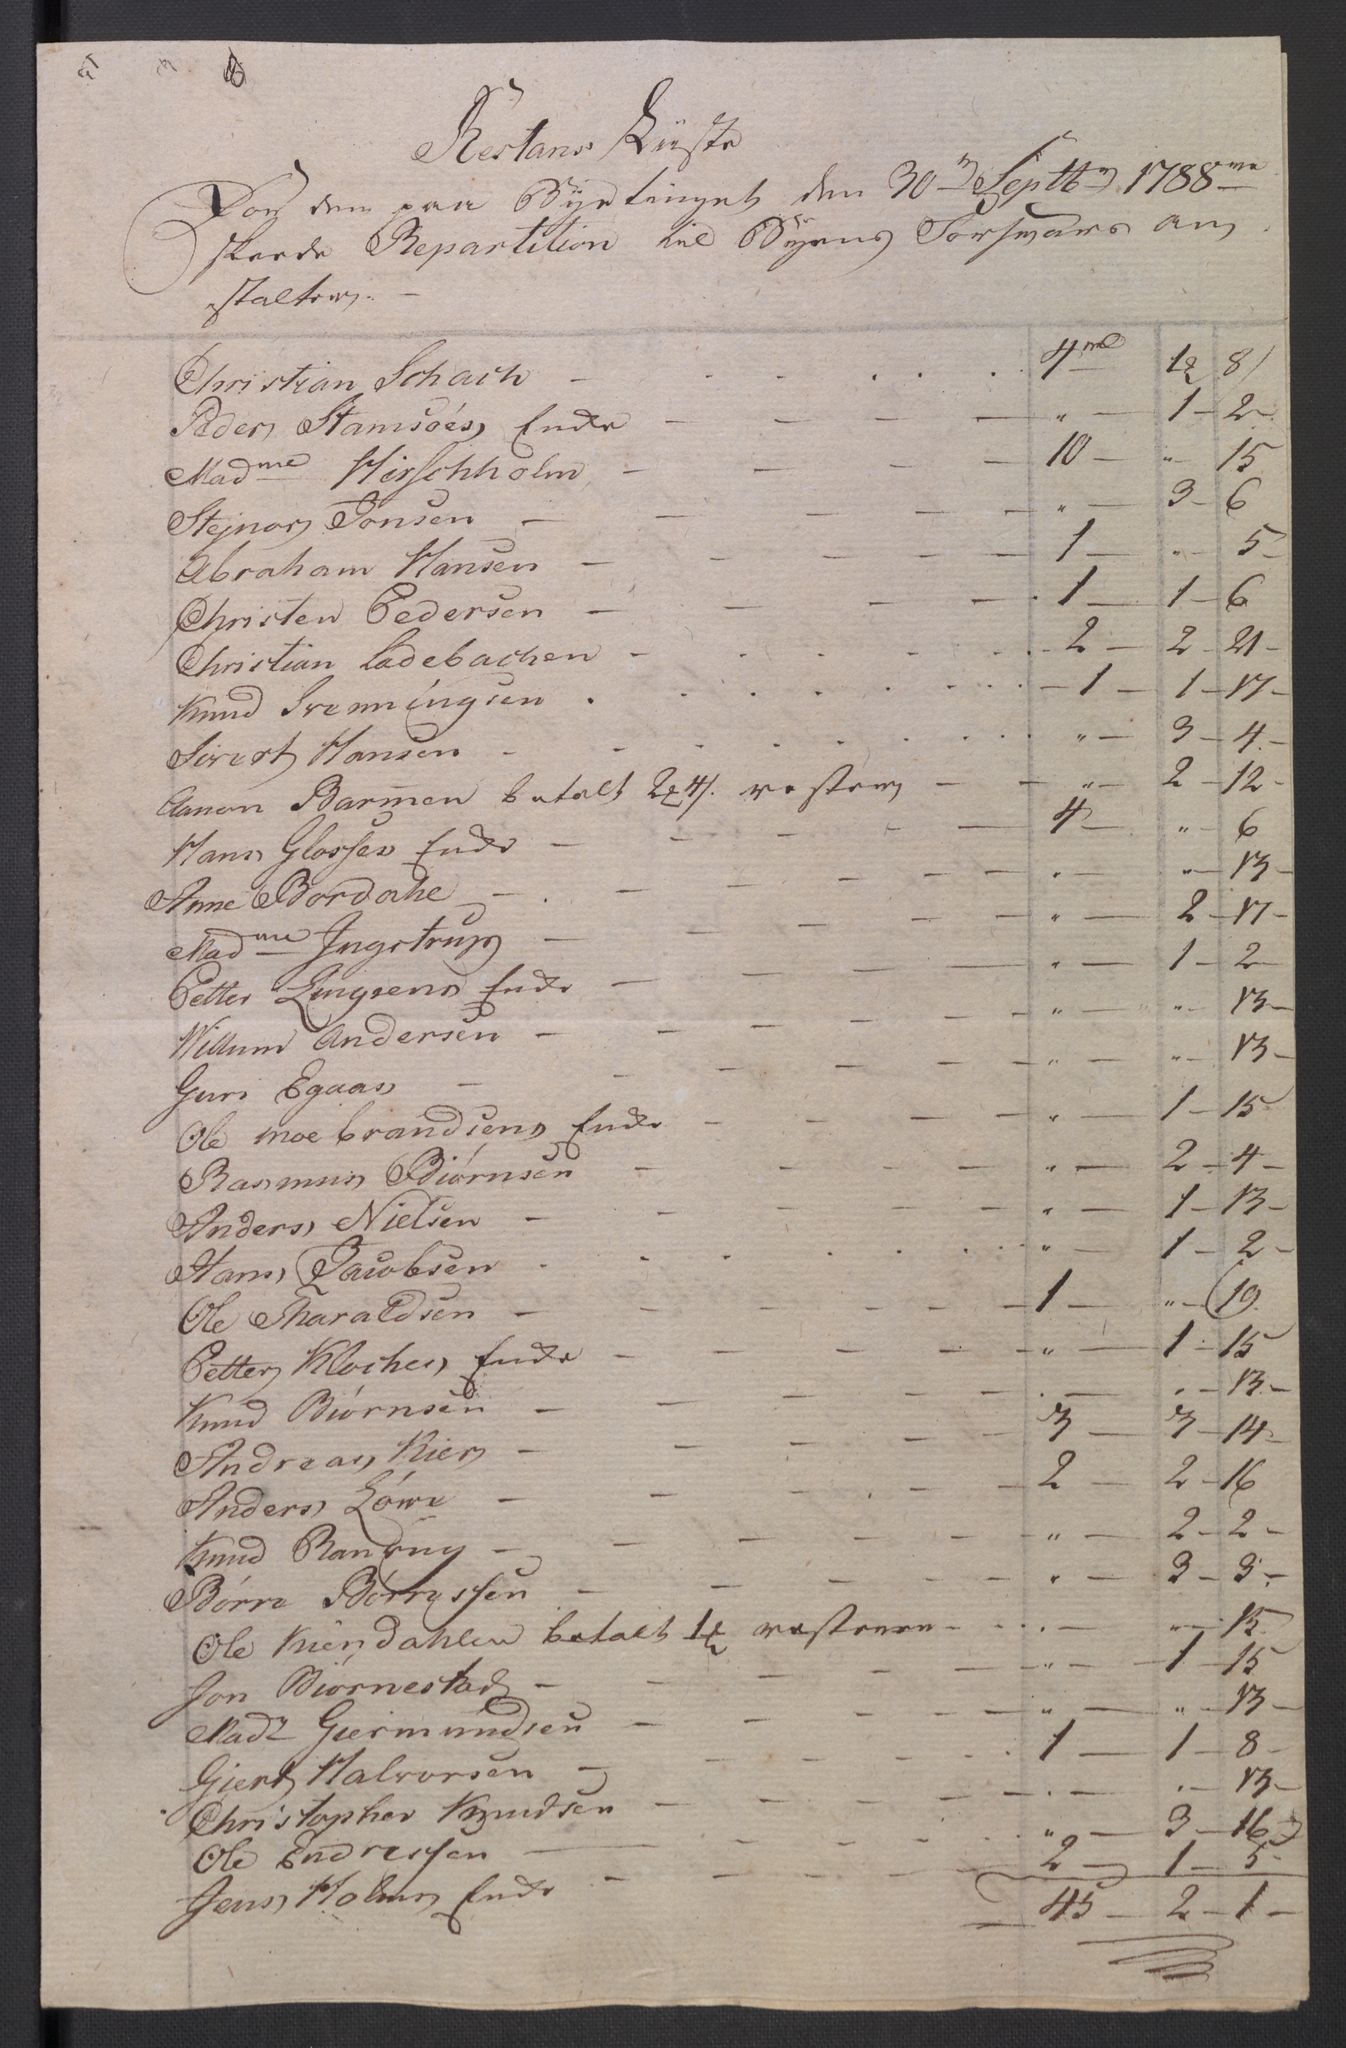 Restans Liiste
For den paa Bÿetinget den 30te Septbr 1788me
skeede Repartition til Bÿens Forsvars an
stalter. —
Christian Schach — 4 rd 1 8
Peder Stamsöes Enke — " — 1 — 2 —
Madme Hirschholm — 10 — " — 15
Stejnor Jonsen — " — 3 — 6
Abraham Hansen — 1 — " — 5 —
Christen Pedersen — 1 — 1 — 6
Christian Ladebachen — 2 — 2 — 21 —
Knud Svenningsen — 1 — 1 — 17 —
Sivert Hansen — " — 3 — 4 —
Aanon Barmen betalt 2 4 s. resterer — " — 2 — 12 —
Hans Glosses Enke — 4 — " — 6
Anne Bordahe — " — " — 13 —
Madme Ingstrup — " — 2 — 17 —
Petter Lingsens Enke — " — 1 — 2 —
Willum Andersen — " — " — 13 —
Guri Egaas — " — " — 13 —
Ole moebrandsens Enke — " — 1 — 15
Rasmus Biörnsen — " — 2 — 4 —
Anders Nielsen — " — 1 — 13 —
Hans Jacobsen — " — 1 — 2 —
Ole Tharaldsen — 1 — " — 19
Petter Kloches Enke — " — 1 — 15
Knud Biörnsen — " — " — 13 —
Andreas Kier — 3 — 3 — 14 —
Anders Löwe — 2 — 2 — 16
Knud Randwig — " — 2 — 2 —
Börre Börressen — " — 3 — 3 —
Ole Kiendahlen betalt 1 resterer — " — " — 15
Jon Biörnestad — " — 1 — 15
Madm Giermundsen — " — " — 13 —
Giert Halvorsen — 1 — 1 — 8 —
Christopher Knudsen — " — " — 13 —
Ole Endressen — " — 3 — 16
Jens Holms Enke — 2 — 1 — 5 —
45 — 2 — 1 —